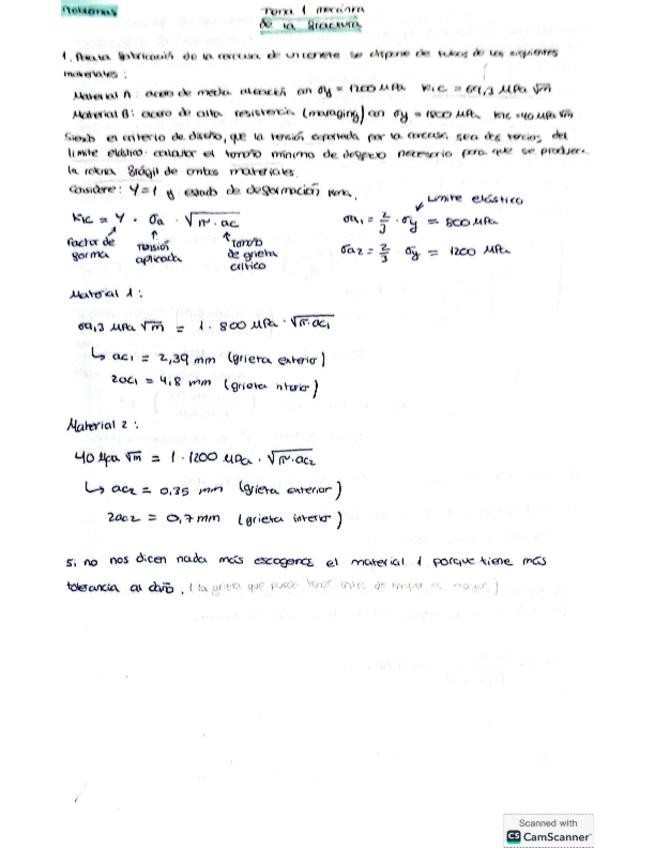 Problemas
Tema 1 mecánica
de la fractura
1. Para la fabricación de la carcasa de un cohete se dispone de tubos de los siguientes
materiales:
Material A: acero de media aleación con σy = 1200 MPa KIC = 69,3 MPa √m
Material B: acero de alta resistencia (maraging) con σy = 1800 MPa KIC = 40 MPa √m
Siendo el criterio de diseño, que la tensión soportada por la carcasa sea dos tercios del
límite elástico. calcular el tamaño mínimo de defecto necesario para que se produzca
la rotura frágil de ambos materiales.
Considere: Y=1 y estado de deformación plana.
KIC = Y · σa · √π·ac
factor de forma
tensión aplicada
tamaño de grieta crítico
límite elástico
σa1 = 2/3 · σy = 800 MPa
σa2 = 2/3 σy = 1200 MPa
Material 1:
69,3 MPa √m = 1 · 800 MPa · √π·ac1
↳ ac1 = 2,39 mm (grieta exterior)
2ac1 = 4,8 mm (grieta interior)
Material 2:
40 Mpa √m = 1 · 1200 MPa · √π·ac2
↳ ac2 = 0,35 mm (grieta exterior)
2ac2 = 0,7 mm (grieta interior)
si no nos dicen nada más escogemos el material 1 porque tiene más
tolerancia al daño. (la grieta que puede tener antes de romper es mayor)
Scanned with
CS CamScanner